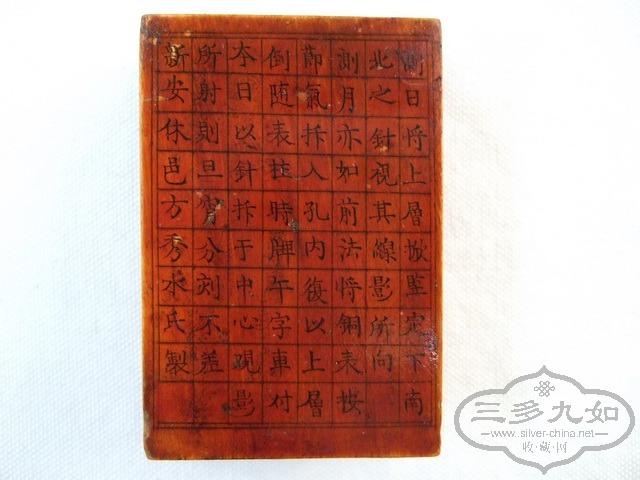 測日将上層掀監定下南
北之針視其線影所向
測月亦如前法将銅表按
節氣挿入孔内復以上層
倒随表柱時牌午字車付
夲日以針挿于中心視影
所射則旦宵分刻不差
新安休邑方秀水氏製
三多九如
—www.silver-china.net—
收·藏·网